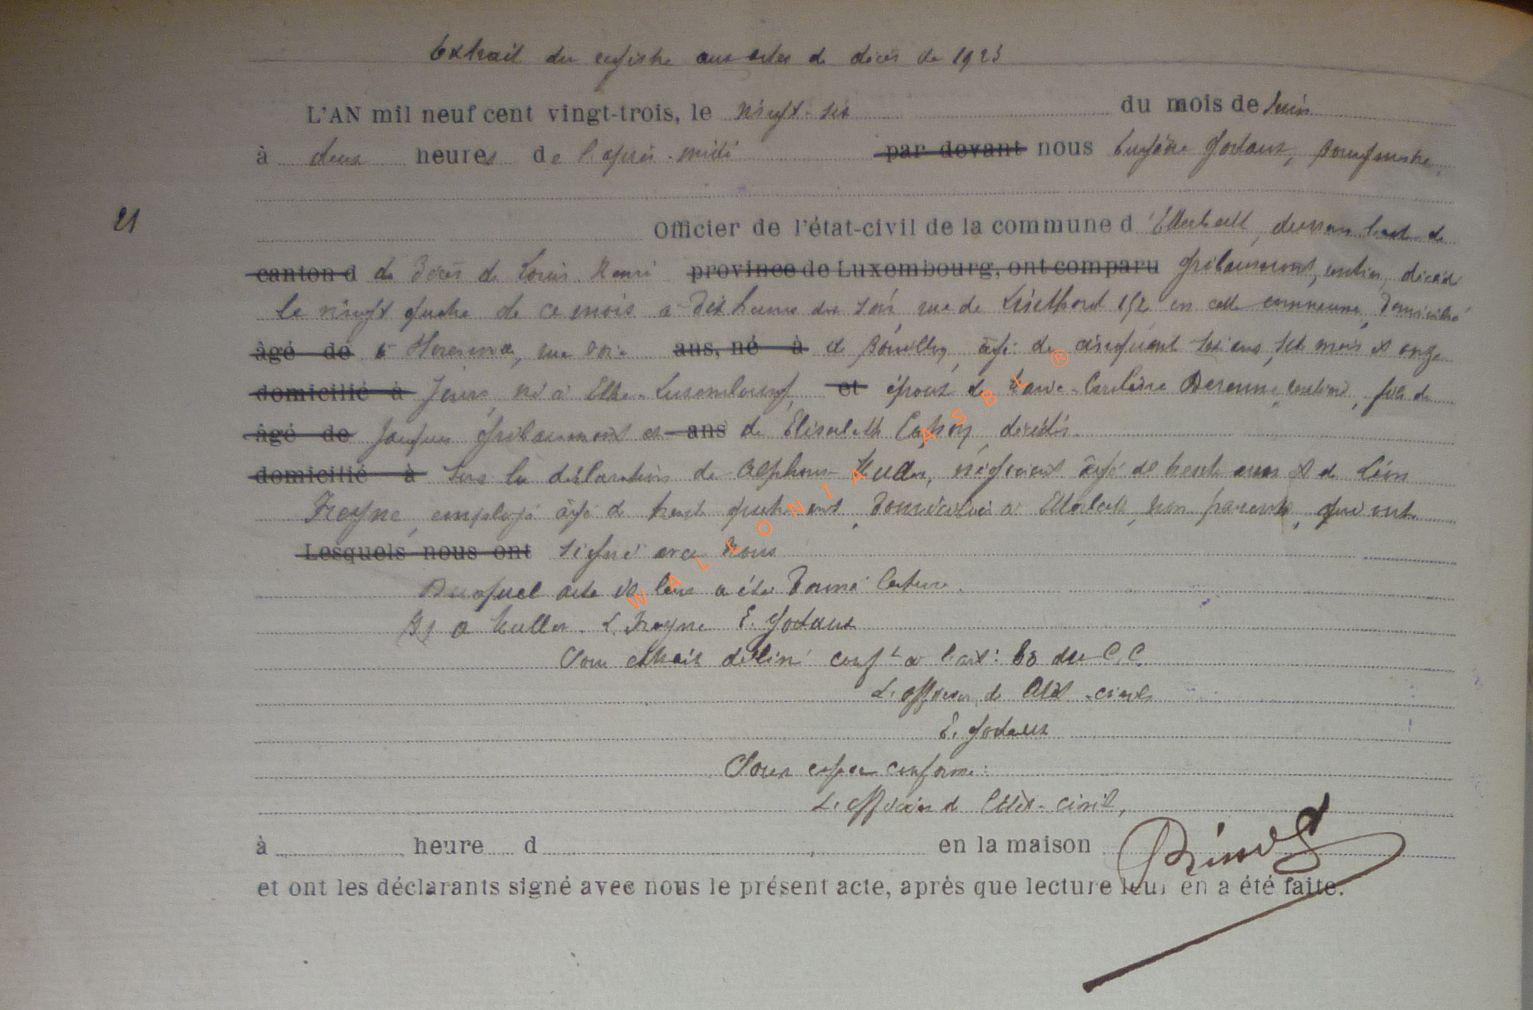 Extrait du registre aux actes de décès de 1923
L'AN mil neuf cent vingt-trois, le vingt-six du mois de Juin
à deux heures de l'après-midi par devant nous Eugène Godaux, Bourgmestre,
21
Officier de l'état-civil de la commune d'Etterbeek, dressons l'acte de
canton d de Décès de Louis Henri province de Luxembourg, ont comparu Gribaumont, rentier, décédé
le vingt quatre de ce mois à dix heures du soir rue de Linthout 152 en cette commune, domicilié
âgé de à rue ans, né à de âgé de cinquante six ans, sept mois et onze
domicilié à jours, né à Luxembourg, et époux de Marie-Caroline rentière, fils de
âgé de Jacques Gribaumont et ans de Elisabeth décédés.
domicilié à Sur la déclaration de Alphonse Muller, négociant âgé de trente ans et de Léon
Freyne, employé âgé de trente quatre ans, domiciliés à Etterbeek, non parents, qui ont
Lesquels nous ont signé avec Nous
Duquel acte il leur a été donné lecture.
A Muller. L. Freyne E. Godaux
Pour extrait délivré conft à l'art: 80 du C.C.
L'officier de l'Etat-civil
E. Godaux
Pour copie conforme:
L'officier de l'Etat-civil,
à heure d en la maison
et ont les déclarants signé avec nous le présent acte, après que lecture leur en a été faite.
WALLONIA ASBL ®